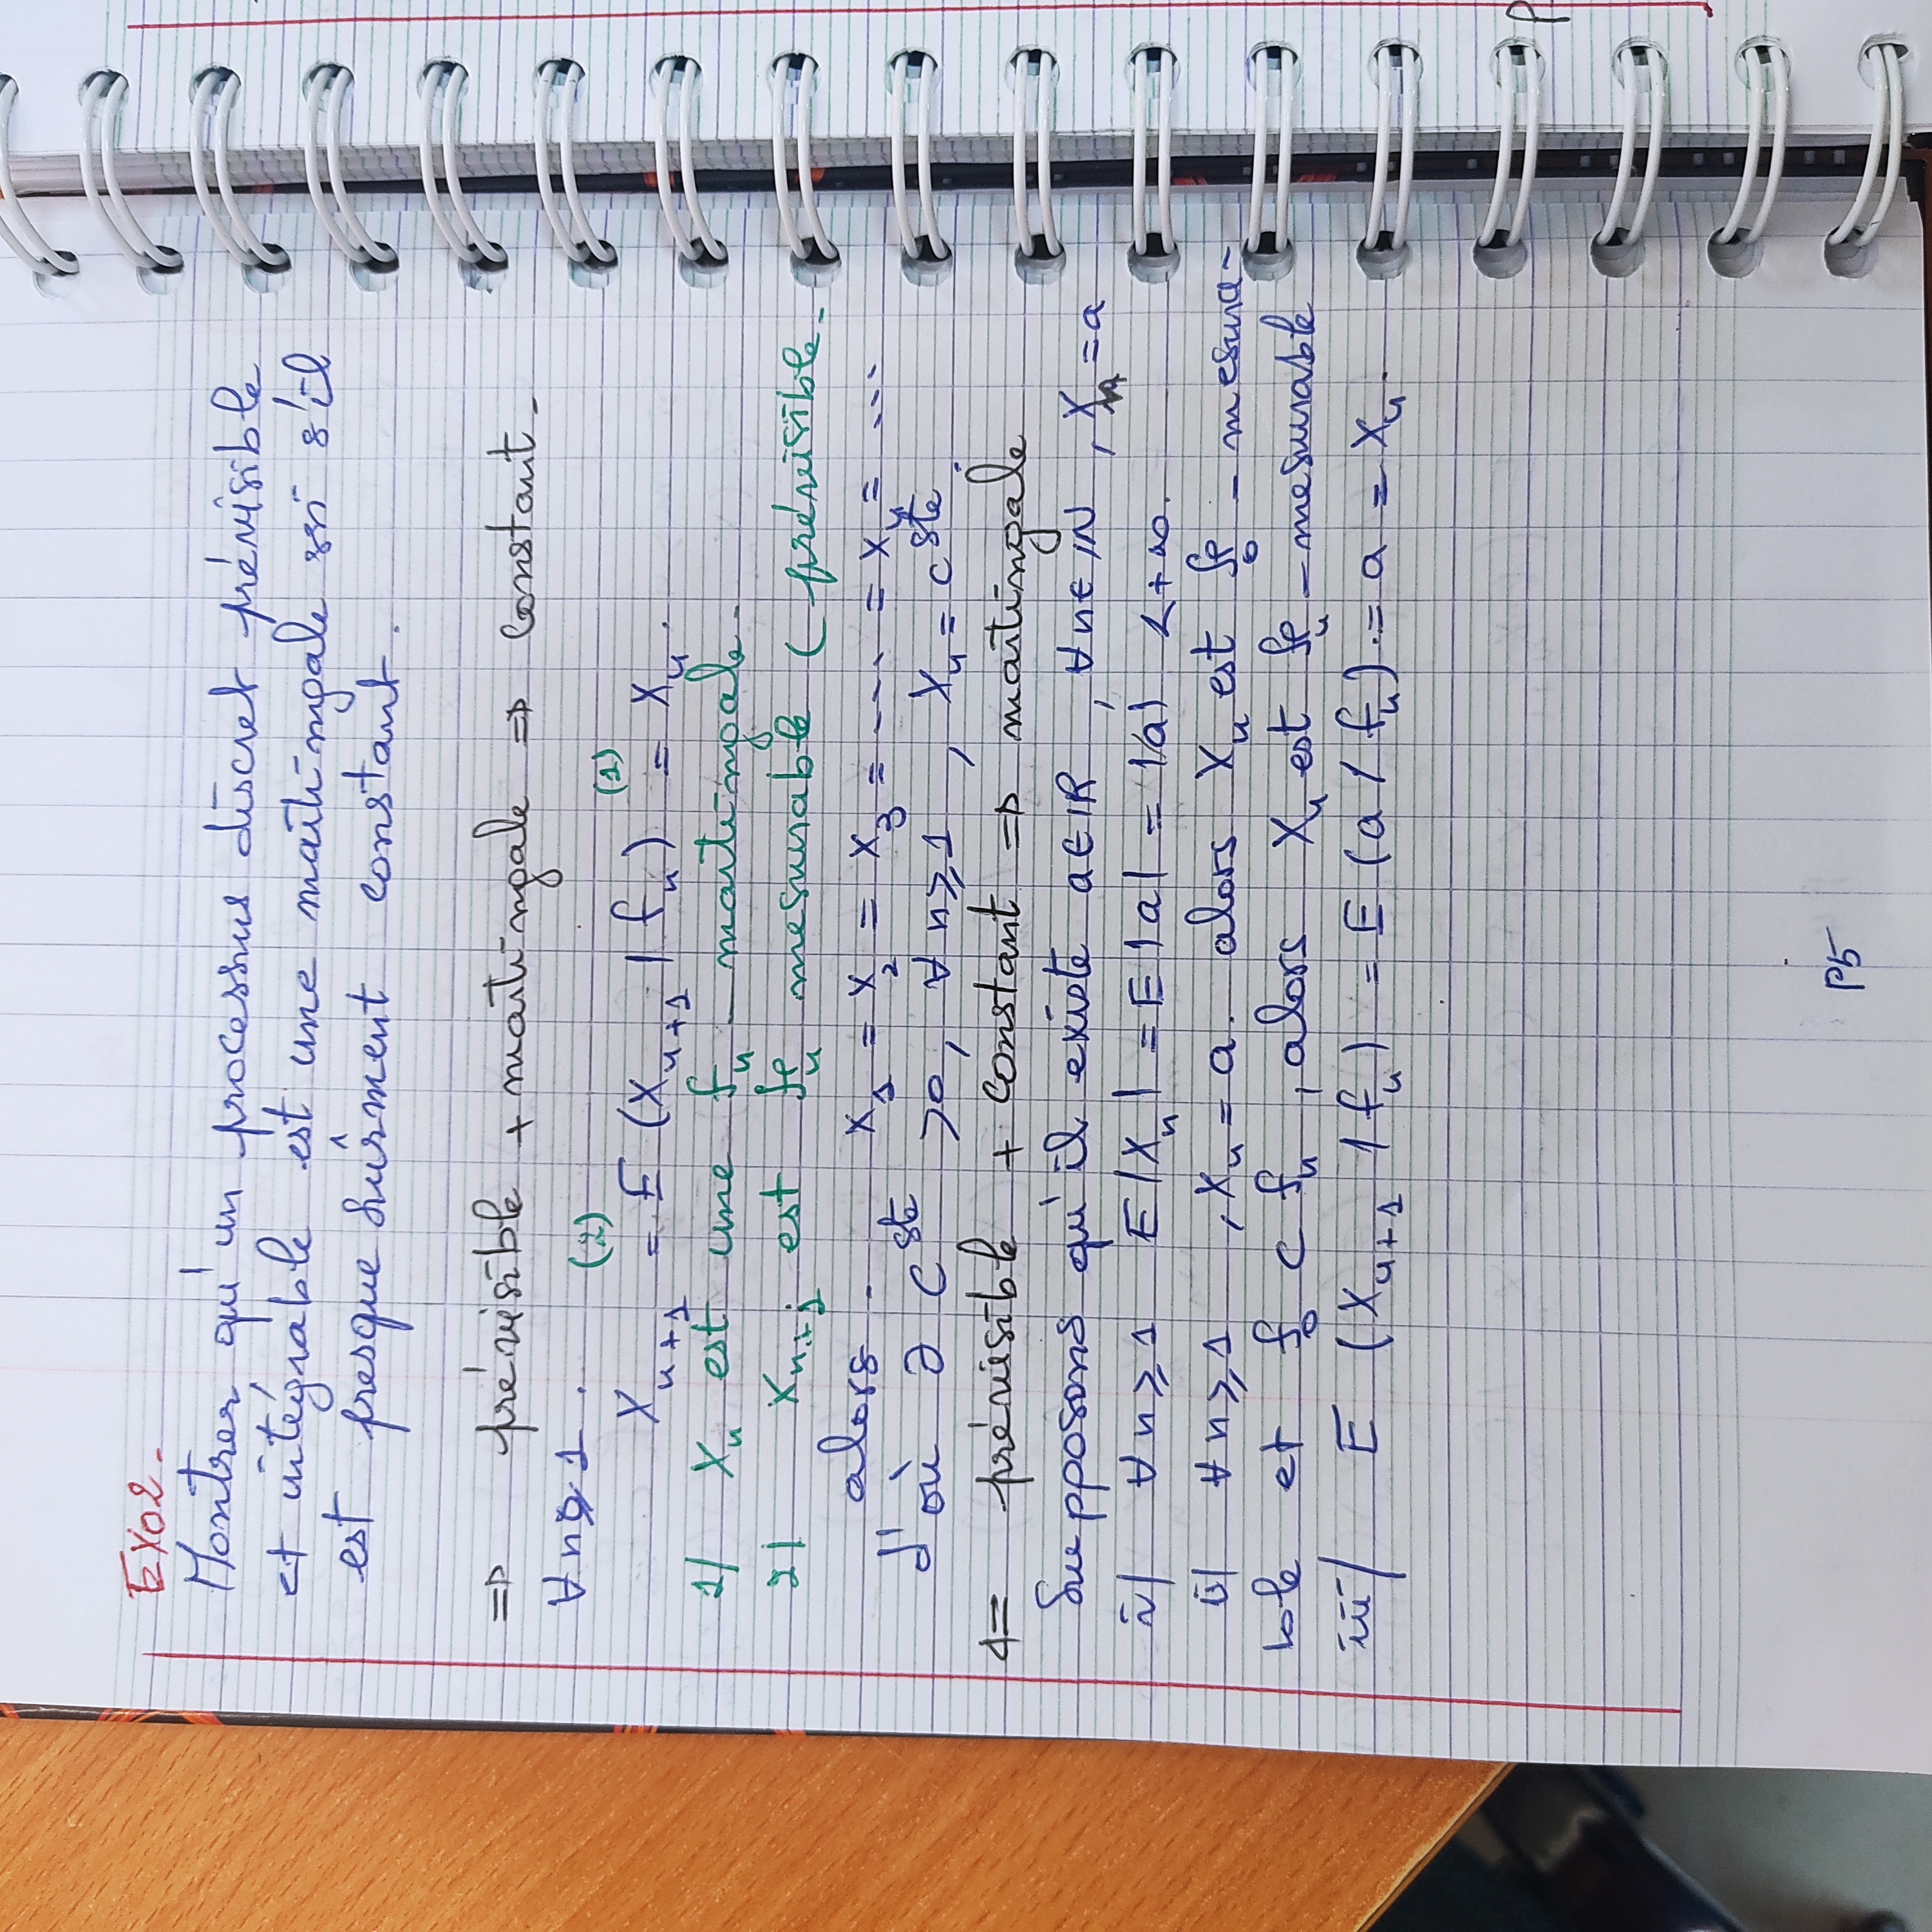 EXO2.
Montrer qu'un processus discret prévisible
et intégrable est une martingale ssi s'il
est presque sûrment constant.
⇒ prévisible + martingale ⇒ constant.
∀ n ≥ 1.
(2) (1)
X_{n+1} = E (X_{n+1} | f_n) = X_n.
1/ X_n est une f_n - martingale.
2/ X_{n+1} est f_n mesurable ( prévisible.
alors X_1 = X_2 = X_3 = ---- = X_n = ...
d'où ∃ C^{ste} >0, ∀ n ≥ 1, X_n = C^{ste}.
⇐ prévisible + constant ⇒ martingale
Supposons qu'il existe a ∈ IR, ∀ n ∈ IN, X_n = a
i/ ∀ n ≥ 1 E|X_n| = E|a| = |a| < +∞.
ii/ ∀ n ≥ 1, X_n = a. alors X_n est f_0 - mesura-
ble et f_0 ⊂ f_n, alors X_n est f_n - mesurable
iii/ E (X_{n+1} / f_n) = E (a / f_n) = a = X_n.
P5
P